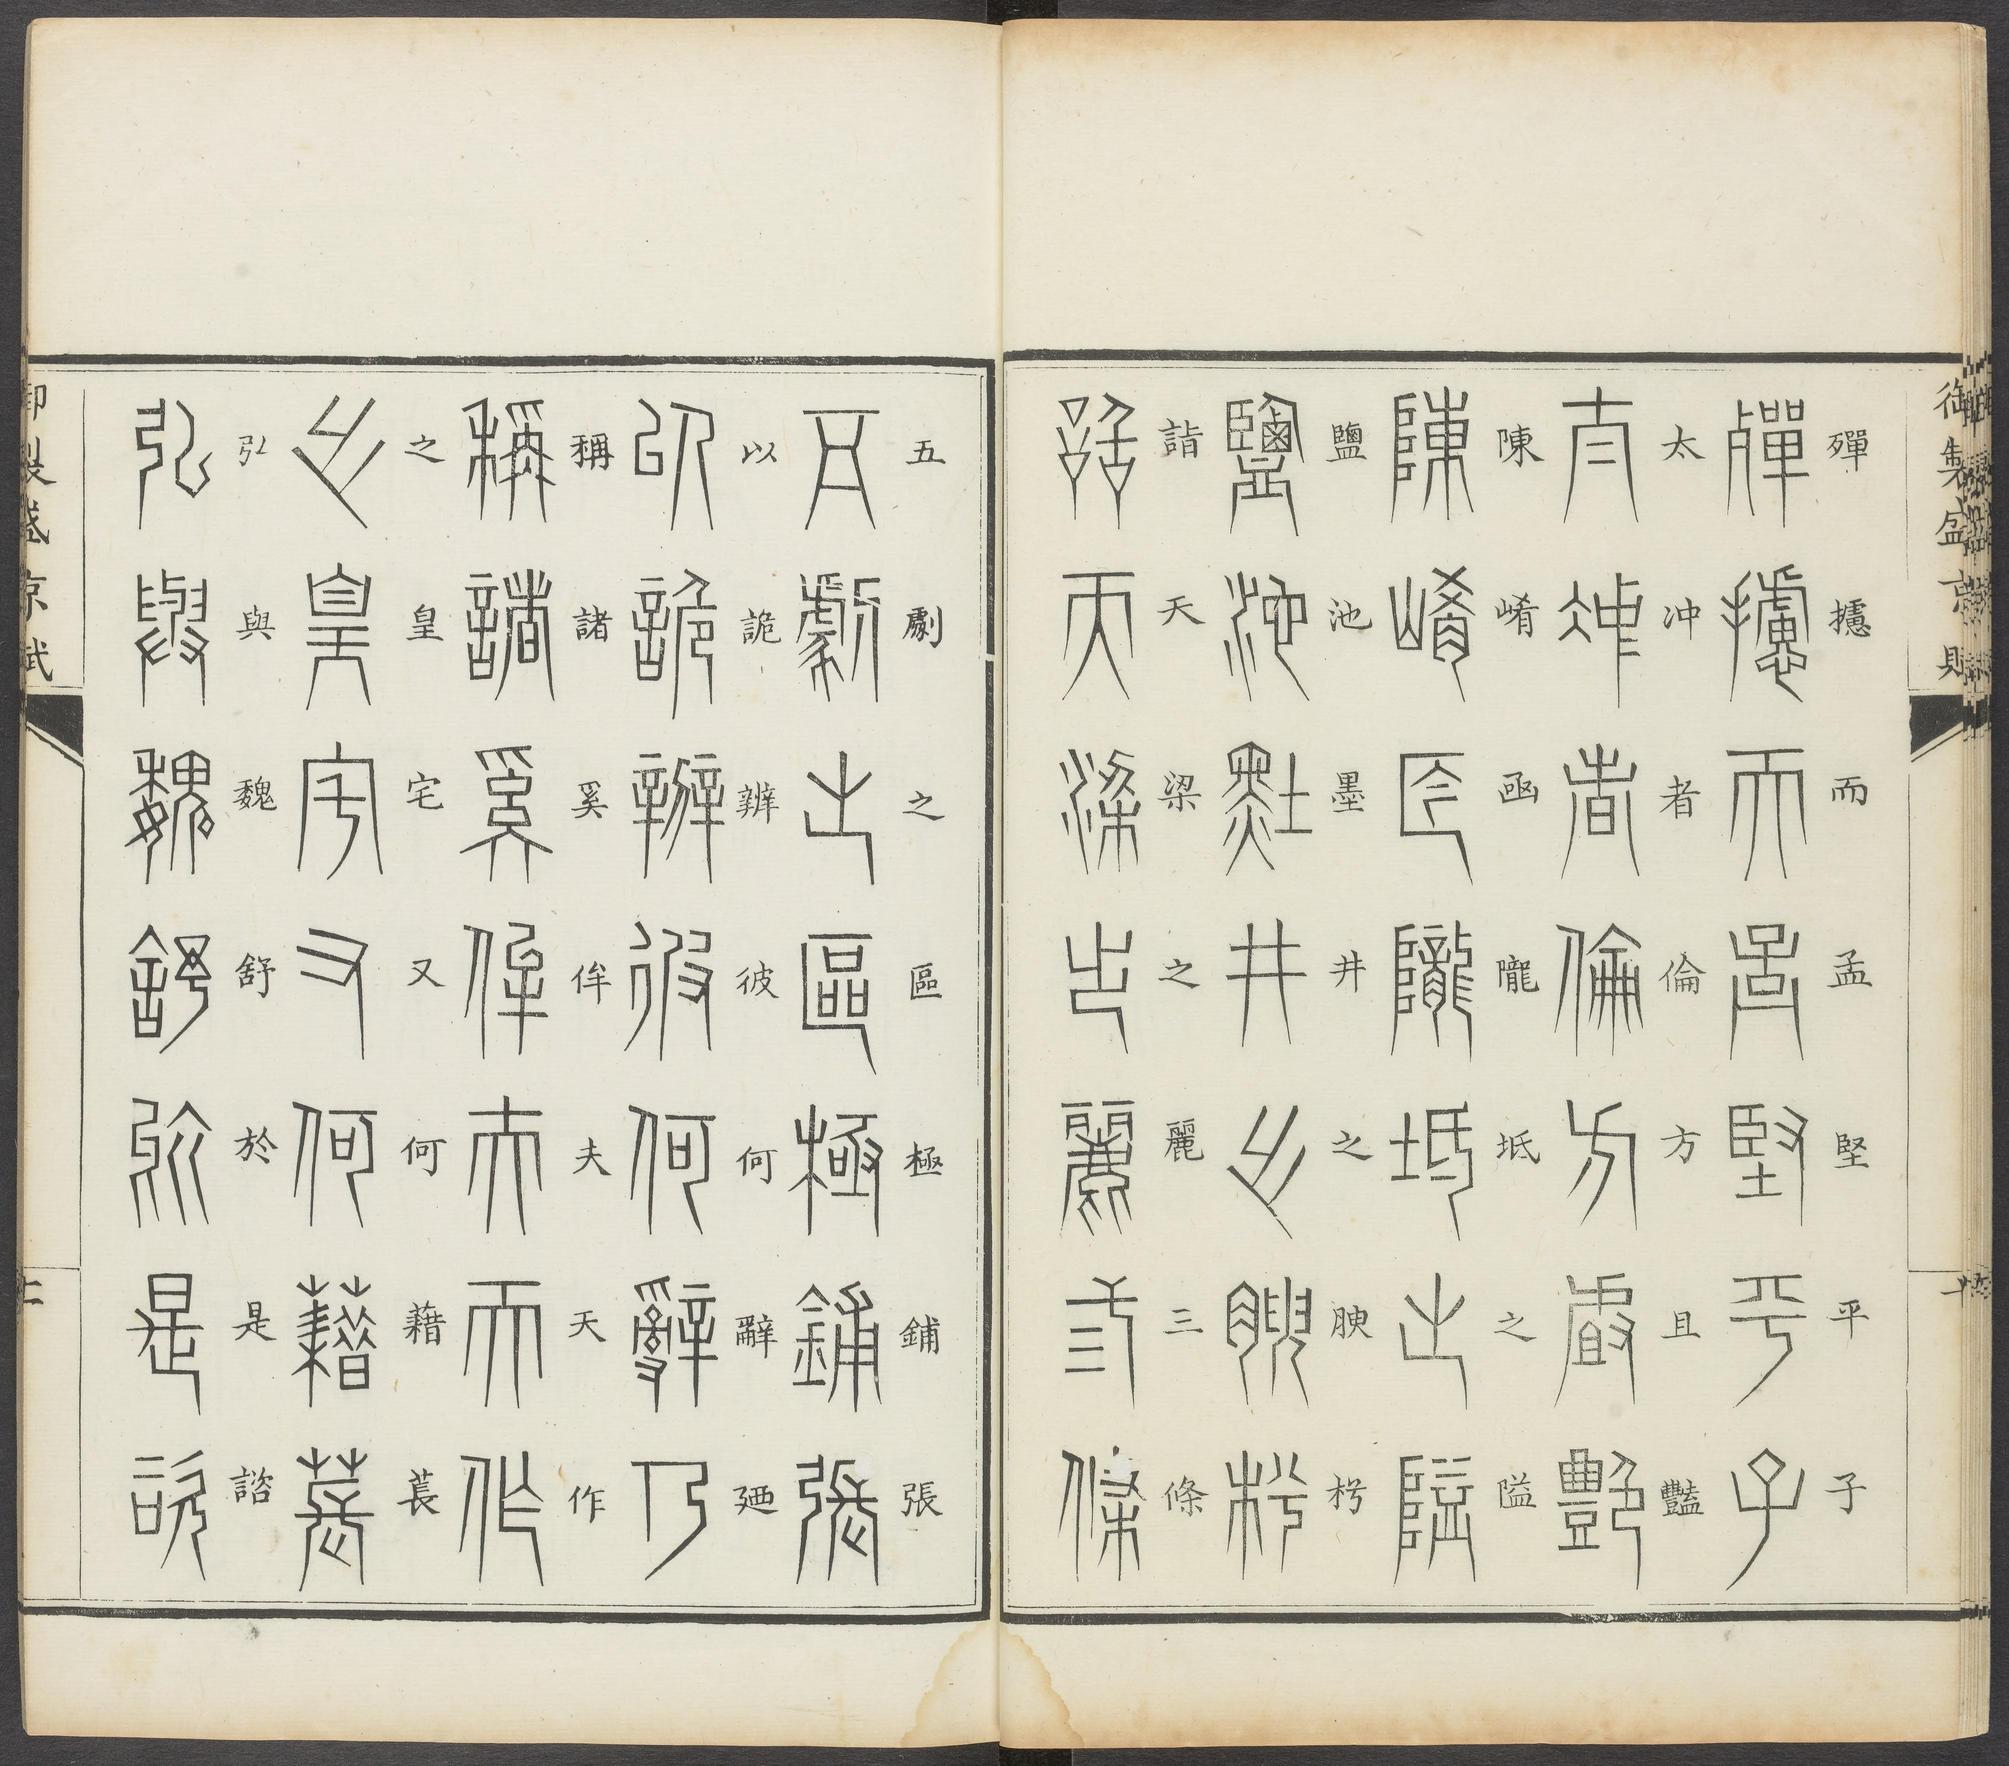 御製盛京賦
殫攄而孟堅平子
太冲者倫方且豔
陳崤凾隴坻之隘
鹽池墨井之腴枵
詣天梁之麗三條
五劇之區極鋪張
以詭辨彼何辭廼
稱諸奚侔夫天作
之皇宅又何藉萇
弘與魏舒於是諮
御製盛京賦